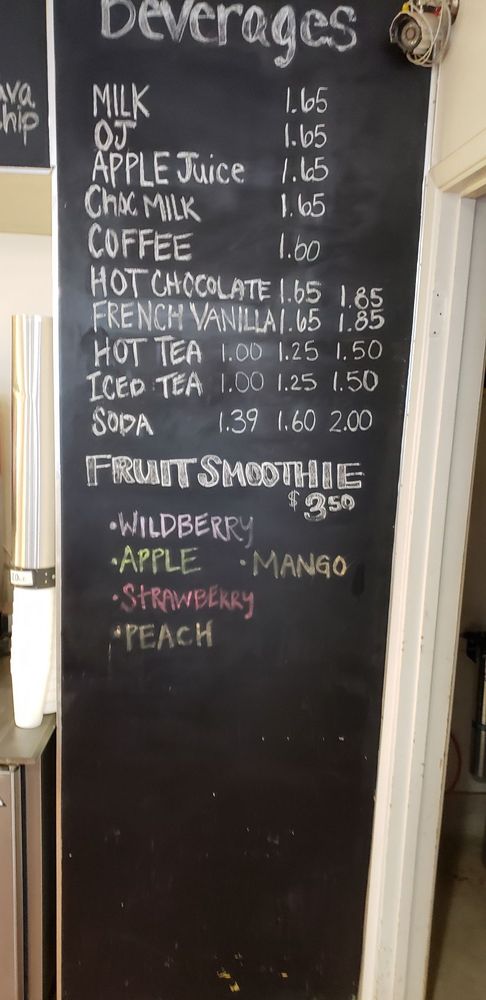 Beverages
MILK 1.65
OJ 1.65
APPLE Juice 1.65
CHOC MILK 1.65
COFFEE 1.60
HOT CHOCOLATE 1.65 1.85
FRENCH VANILLA 1.65 1.85
HOT TEA 1.00 1.25 1.50
ICED TEA 1.00 1.25 1.50
SODA 1.39 1.60 2.00
FRUIT SMOOTHIE
$3.50
•WILDBERRY
•APPLE •MANGO
•STRAWBERRY
•PEACH